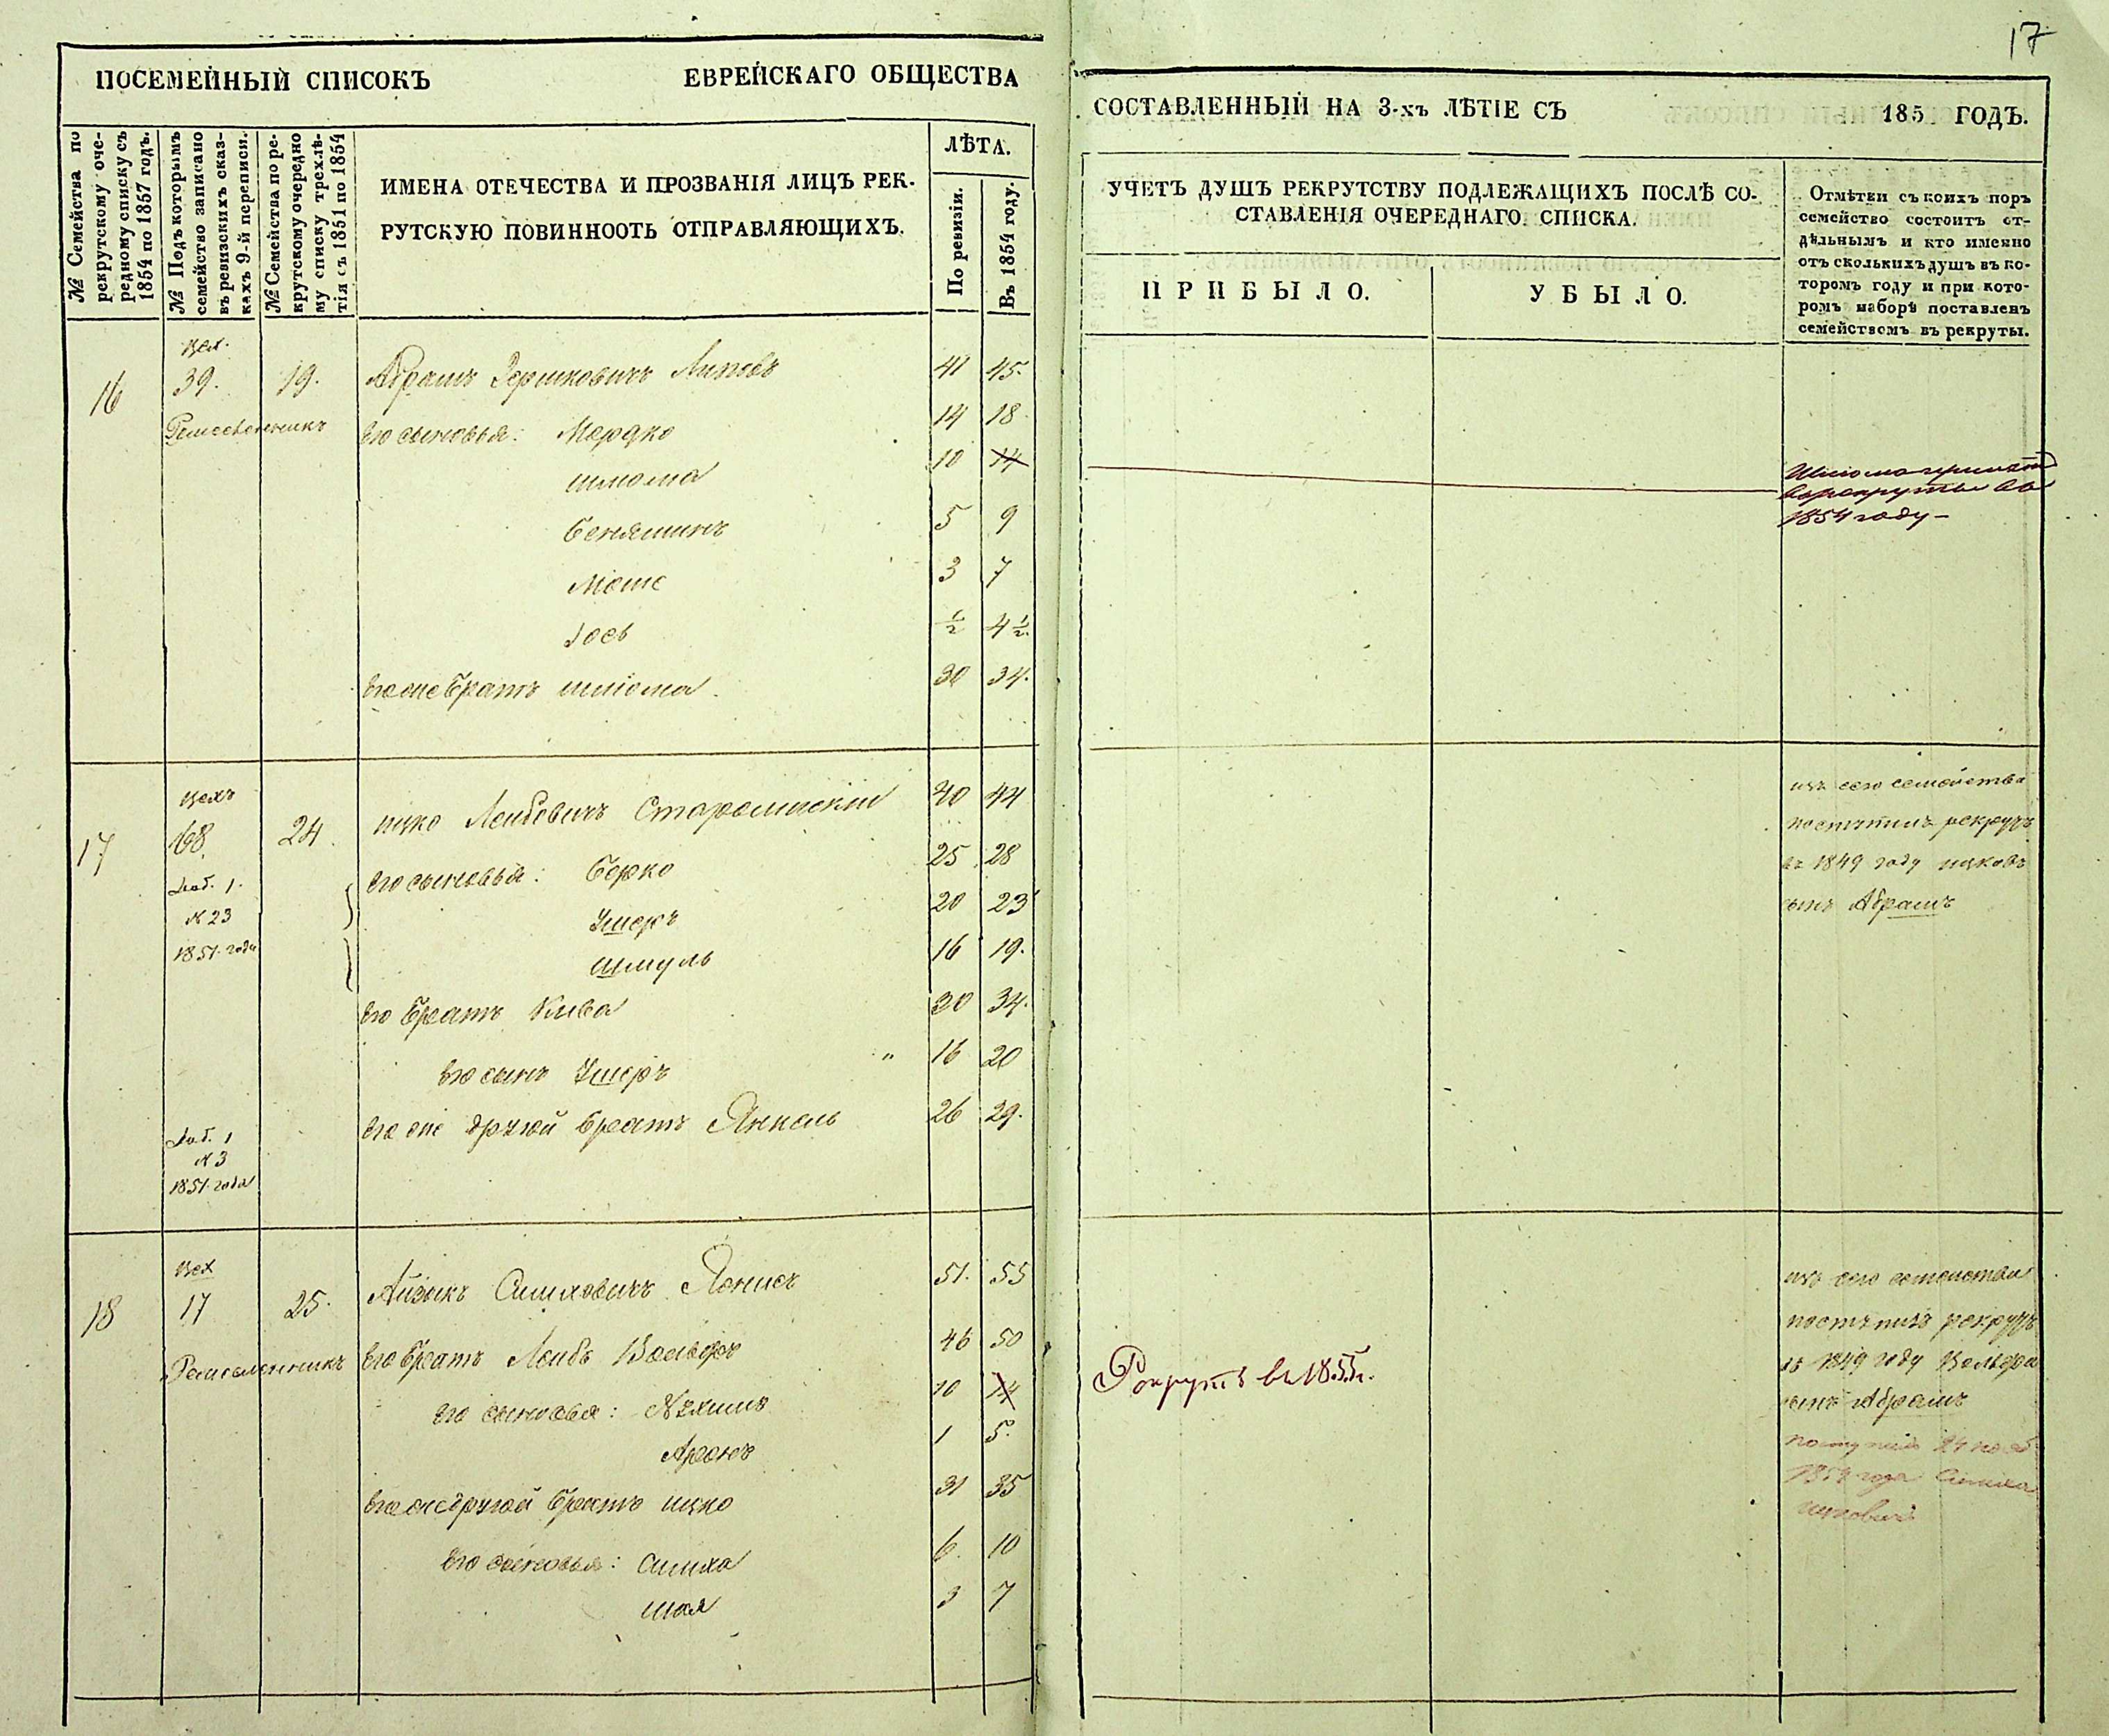 17
ПОСЕМЕЙНЫЙ СПИСОКЪ ЕВРЕЙСКАГО ОБЩЕСТВА
СОСТАВЛЕННЫЙ НА 3-хъ ЛѢТІЕ СЪ 185 ГОДЪ.
№ Семейства по
рекрутскому оче-
редному списку съ
1854 по 1857 годъ.
№ Подъ которымъ
семейство записано
въ ревизскихъ сказ-
кахъ 9-й переписи.
№ Семейства по ре-
крутскому очередно
му списку трехлѣ-
тія съ 1851 по 1854
ИМЕНА ОТЕЧЕСТВА И ПРОЗВАНІЯ ЛИЦЪ РЕК-
РУТСКУЮ ПОВИННООТЬ ОТПРАВЛЯЮЩИХЪ.
ЛѢТА.
По ревизіи.
Въ 1854 году.
УЧЕТЪ ДУШЪ РЕКРУТСТВУ ПОДЛЕЖАЩИХЪ ПОСЛѢ СО-
СТАВЛЕНІЯ ОЧЕРЕДНАГО СПИСКА.
ПРИБЫЛО.
УБЫЛО.
Отмѣтки съ коихъ поръ
семейство состоитъ от-
дѣльнымъ и кто именно
отъ сколькихъ душъ въ ко-
торомъ году и при кото-
ромъ наборѣ поставленъ
семействомъ въ рекруты.
Цех.
16 39. 19. Абрамъ Гершковичъ 41 45.
Ремесленникъ его сыновья: Мордко 14 18
шлиома 10 14
Бениаминъ 5 9
Моше 3 7
Іось ½ 4½.
его же братъ шлиома 30 34.
Шлиома принятъ
въ рекруты въ
1854 году
Цехъ
17 68. 24. ицко Лейбовичъ 40 44
Доб. 1. его сыновья: Берко 25 28
№ 23 Ушеръ 20 23
1851. года Шмуль 16 19.
его братъ Кива 30 34.
его сынъ Ушеръ " 16 20
его же другой братъ Янкель 26 29.
Доб. 1
№ 3
1851. года
изъ сего семейства
поступилъ рекрутъ
въ 1849 году ицковъ
сынъ Абрамъ
Цех
18 17 25. Айзикъ Симховичъ 51. 55
Ремесленникъ его братъ Лейбъ Вольфъ 46 50
его сыновья: Нухимъ 10 14
Аронъ 1 5.
его же другой братъ ицко 31 35
его сыновья: симха 6. 10
шая 3 7
Рекрутъ въ 1855 г.
изъ сего семейства
поступилъ рекрутъ
въ 1849 году Вольфа
сынъ Абрамъ
поступилъ
1854 года Симха
ицковичъ